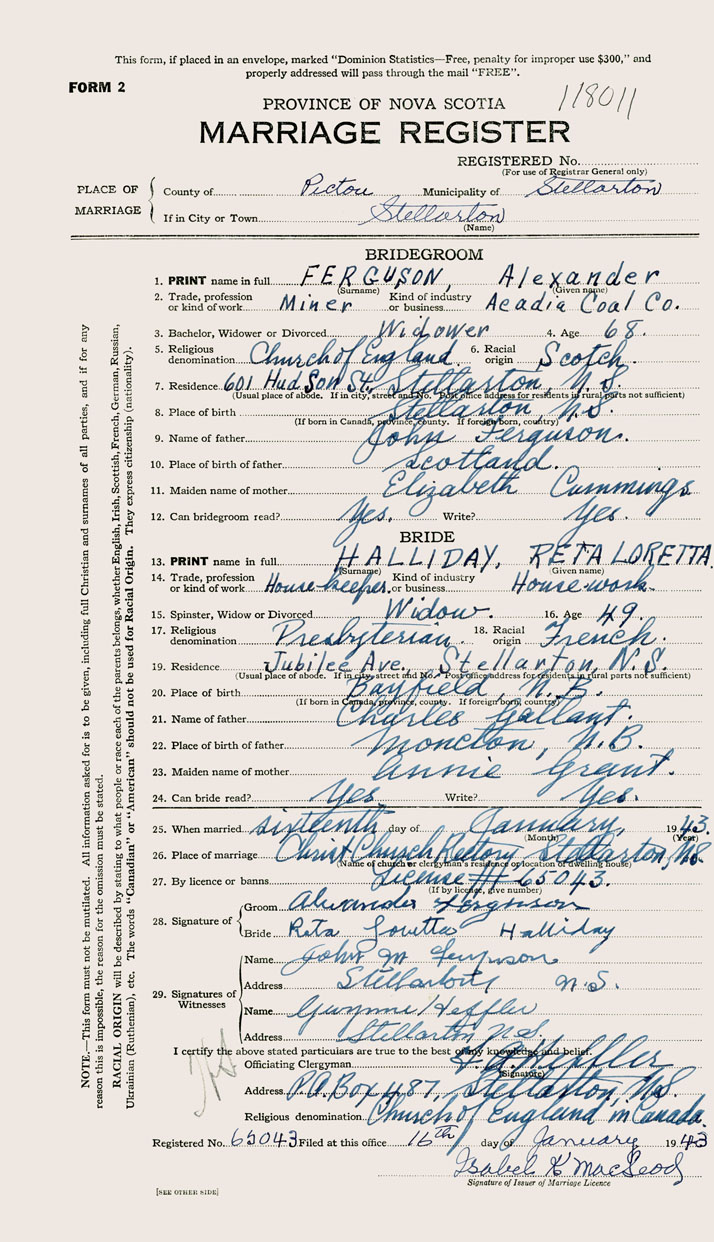 This form, if placed in an envelope, marked “Dominion Statistics—Free, penalty for improper use $300,” and
properly addressed will pass through the mail “FREE”.
FORM 2
118011
PROVINCE OF NOVA SCOTIA
MARRIAGE REGISTER
REGISTERED No.
(For use of Registrar General only)
PLACE OF MARRIAGE
County of Pictou Municipality of Stellarton
If in City or Town Stellarton
(Name)
BRIDEGROOM
1. PRINT name in full FERGUSON, Alexander
(Surname) (Given name)
2. Trade, profession or kind of work Miner Kind of industry or business Acadia Coal Co.
3. Bachelor, Widower or Divorced Widower 4. Age 68.
5. Religious denomination Church of England 6. Racial origin Scotch.
7. Residence 601 Hudson St., Stellarton, N.S.
(Usual place of abode. If in city, street and No. Post office address for residents in rural parts not sufficient)
8. Place of birth Stellarton, N.S.
(If born in Canada, province, county. If foreign born, country)
9. Name of father John Ferguson.
10. Place of birth of father Scotland.
11. Maiden name of mother Elizabeth Cummings
12. Can bridegroom read? Yes. Write? Yes.
BRIDE
13. PRINT name in full HALLIDAY, RETA LORETTA.
(Surname) (Given name)
14. Trade, profession or kind of work Housekeeper. Kind of industry or business Housework.
15. Spinster, Widow or Divorced Widow. 16. Age 49.
17. Religious denomination Presbyterian. 18. Racial origin French.
19. Residence Jubilee Ave., Stellarton, N.S.
(Usual place of abode. If in city, street and No. Post office address for residents in rural parts not sufficient)
20. Place of birth Bayfield, N.B.
(If born in Canada, province, county. If foreign born, country)
21. Name of father Charles Gallant.
22. Place of birth of father Moncton, N.B.
23. Maiden name of mother Annie Grant.
24. Can bride read? Yes Write? Yes.
25. When married sixteenth day of January, 1943.
(Month) (Year)
26. Place of marriage Christ Church Rectory Stellarton, N.S.
(Name of church or clergyman's residence or location of dwelling house)
27. By licence or banns License # 65043.
(If by licence, give number)
28. Signature of
Groom Alexander Ferguson
Bride Reta Loretta Halliday
29. Signatures of Witnesses
Name John M Ferguson
Address Stellarton N.S.
Name Gwynne Heffler
Address Stellarton N.S.
I certify the above stated particulars are true to the best of my knowledge and belief.
Officiating Clergyman Heffler
(Signature)
Address P.O. Box 487, Stellarton, N.S.
Religious denomination Church of England in Canada.
Registered No. 65043 Filed at this office 16th day of January 1943
Isabel K MacLeod
Signature of Issuer of Marriage Licence
[SEE OTHER SIDE]
NOTE.—This form must not be mutilated. All information asked for is to be given, including full Christian and surnames of all parties, and if for any
reason this is impossible, the reason for the omission must be stated.
RACIAL ORIGIN will be described by stating to what people or race each of the parents belongs, whether English, Irish, Scottish, French, German, Russian,
Ukrainian (Ruthenian), etc. The words “Canadian” or “American” should not be used for Racial Origin. They express citizenship (nationality).